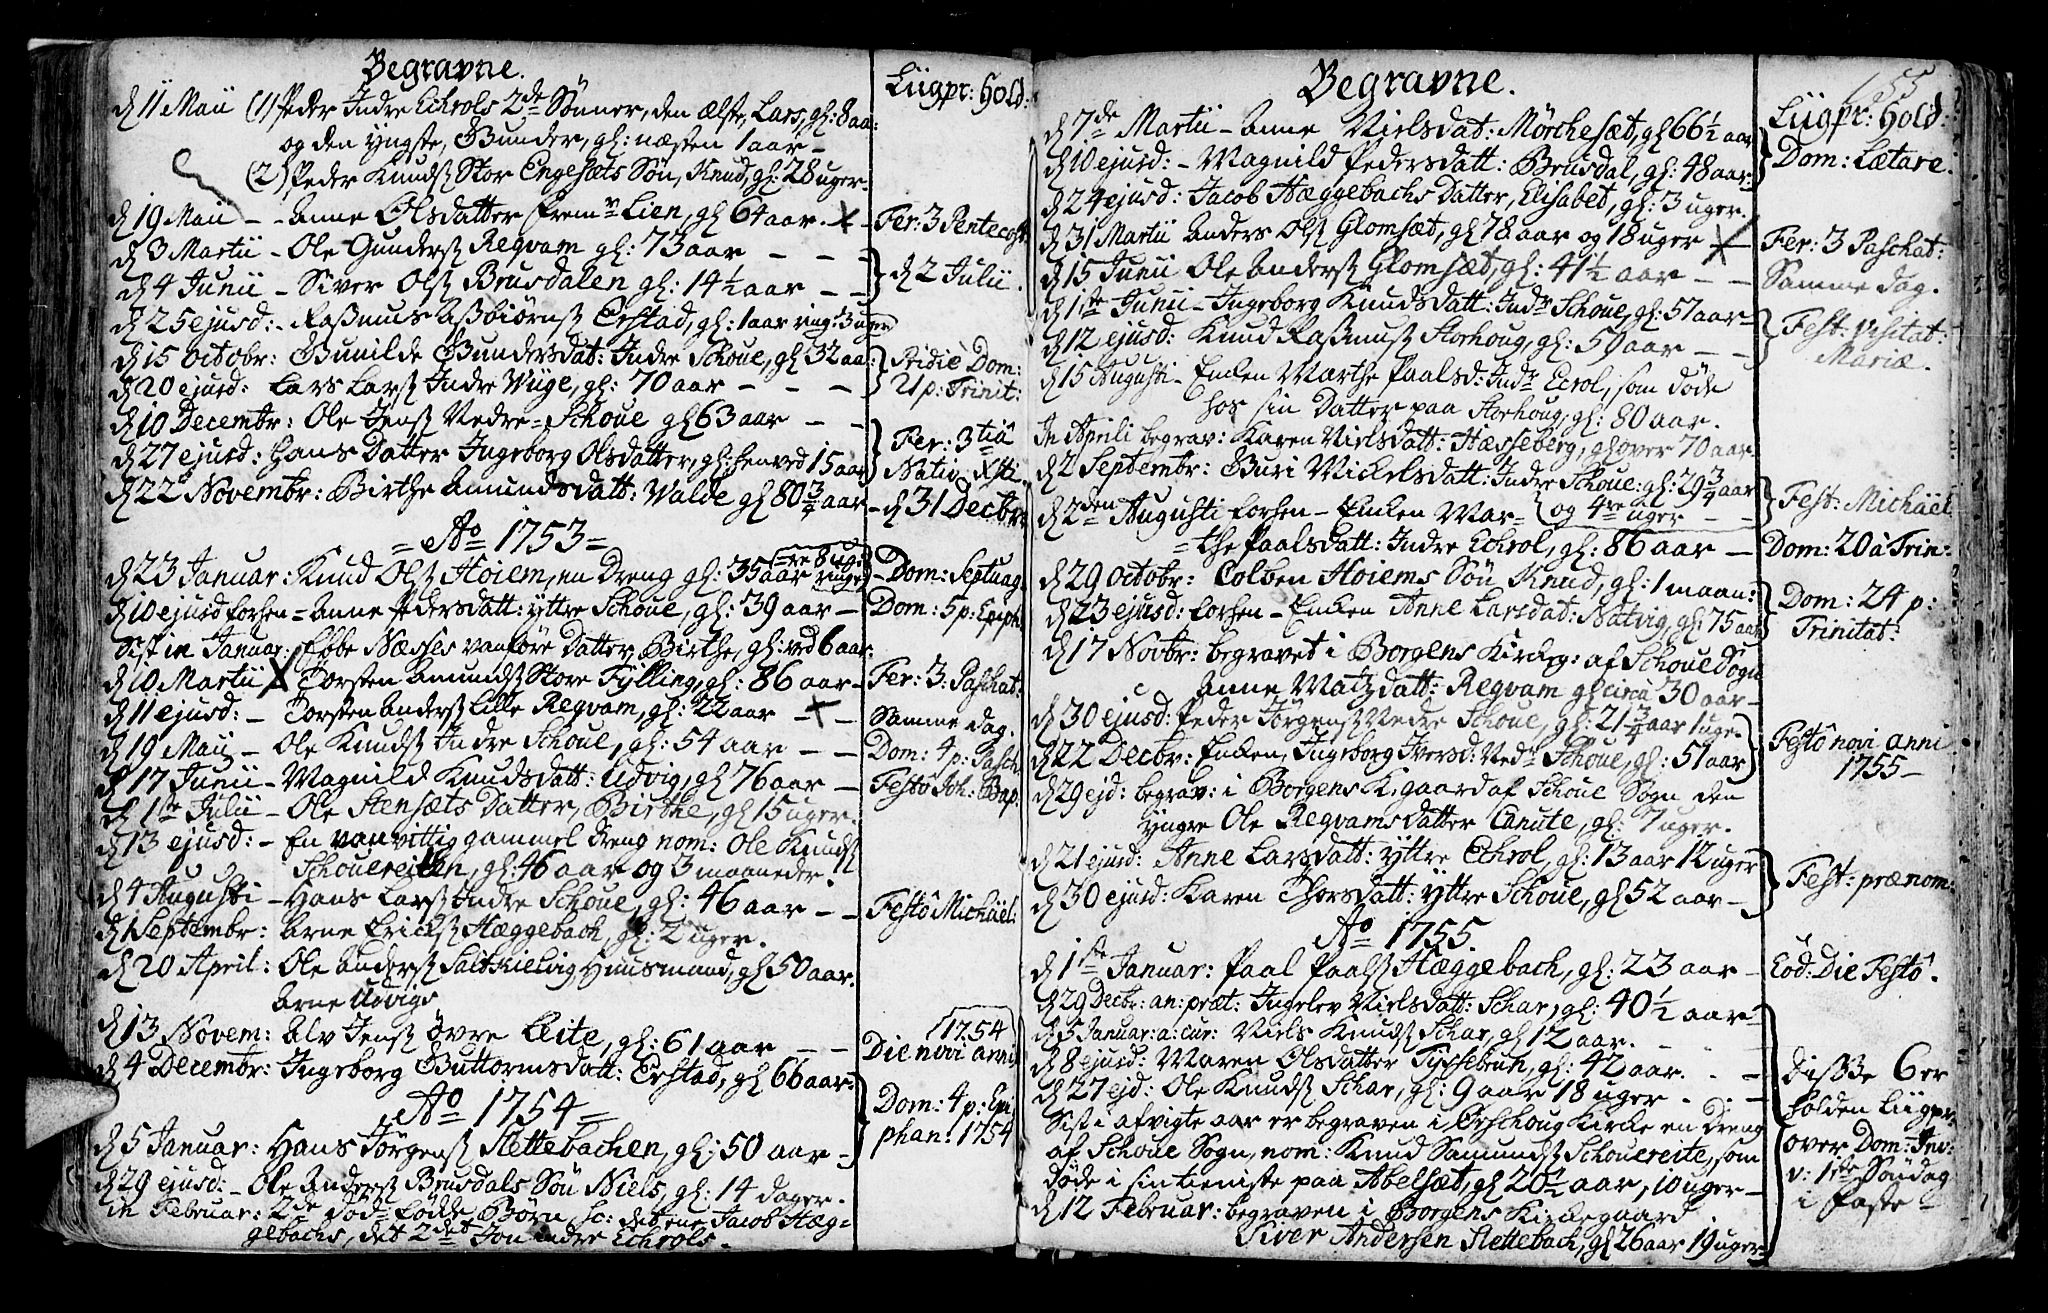 Begravne.
Liigpr: Hold:
d 11 Maii (1) Peder Indre Echrols 2de Sønner, den ælste, Lars, gl: 8 aar
og den yngste, Gunder, gl: næsten 1 aar –
(2) Peder Knuds Stor Engesæts Søn, Knud, gl: 28 uger.
d 19 Maii – – Anne Olsdatter Lien, gl 64 aar. Fer: 3 Pentecost
d 3 Martii – Ole Gunders Reqvam gl: 73 aar – – –
d 4 Junii – Siver Ols Brusdalen gl: 14½ aar – – d 2 Julii.
d 25 ejusd: – Rasmus Asbiørns Erstad, gl: 1 aar ring: 3 uger
d 15 Octobr: Gunilde Gundersdat: Indre Schoue, gl 32 aar: Pridie Dom:
d 20 ejusd: Lars Lars Indre Viige, gl: 70 aar – – – 21 p: Trinit:
d 10 Decembr: Ole Jens Nedre-Schoue gl 63 aar – –
d 27 ejusd: Hans Datter Ingeborg Olsdatter, gl: henved 15 aar Fer: 3tia Nativ: Xsti.
d 22 Novembr: Birthe Amundsdatt: Walde gl 80¾ aar – d 31 Decbr:
= Ao 1753 =
d 23 Januar: Knud Ols Høiem, en Dreng gl: 35 aar – Dom: Septuag.
d 10 ejusd forhen = Anne Pedersdatt: yttre Schoue, gl: 39 aar – Dom: 5 p: Epiph:
Sist in Januar: Ebbe Næsses vanføre Datter, Birthe, gl: ved 6 aar.
d 10 Martii X Torsten Amunds Store Fylling, gl: 86 aar – Fer: 3: Paschat:
d 11 ejusd: – Torsten Anders Lille Reqvam, gl: 22 aar – Samme dag.
d 19 Maij – Ole Knuds Indre Schoue, gl: 54 aar – – Dom: 4 p: Pasch:
d 17 Junii – Magnild Knudsdatt: Udvig, gl 76 aar – Festô Joh: Bap:
d 1ste Julii – Ole Stensæts Datter, Birthe, gl 15 uger.
d 13 ejusd: – En vanvittig gammel dreng nom: Ole Knuds
Schouereiten, gl: 46 aar og 3 maaneder.
d 4 Augusti – Hans Lars Indre Schoue, gl: 46 aar – – Festô Michäel:
d 1 Septembr: Arne Ericks Hæggebach, gl: 2 uger.
d 20 April: Ole Anders Saltkielvig Huusmand, gl 50 aar.
Arne Udvigs
d 13 Novem: Alv Jens øvre Leite, gl: 61 aar – – Die novi anni 1754
d 4 Decembr: Ingeborg Guttormsdatt: Erstad, gl 66 aar:
Ao 1754 =
Dom: 4 p: Epi
phan: 1754
d 5 Januar: Hans Jørgens Slettebachen, gl: 50 aar –
d 29 ejusd: – Ole Anders Brusdals Søn Niels, gl: 14 dager.
in Februar: 2de død-fødde Børn, sc: det ene Jacob Hæg=
gebachs, det 2det Jon Indre Echrols.
155
Begravne.
Liigpr: Hold:
d 7de Martii – Anne Nielsdat: Mørchesæt, gl 66½ aar
d 10 ejusd: – Magnild Pedersdatt: Brusdal, gl: 48 aar: Dom: Lætare.
d 24 ejusd: Jacob Hæggebachs Datter, Elisabet, gl: 3 uger.
d 31 Martii Anders Ols Glomsæt, gl 78 aar og 18 uger Fer: 3 Paschat:
d 15 Junii Ole Anders Glomsæt, gl: 41½ aar – – Samme dag.
d 1ste Junii – Ingeborg Knudsdatt: Indr Schoue, gl: 57 aar –
d 12 ejusd: Knud Rasmus Storhoug, gl: 50 aar – – Fest: Visitat: Mariæ.
d 15 Augusti – Enken Marthe Paalsd: Indr Echrol, som døde
hos sin Datter paa Storhoug, gl: 80 aar.
In Aprili begrav: Karen Nielsdatt: Hæsseberg, gl over 70 aar.
d 2 Septembr: Guri Mickelsdatt: Indre Schoue: gl: 29¾ aar
og 4re uger – – Fest: Michäel:
d 2den Augusti forhen – Enken Mar=
the Paalsdatt: Indre Echrol, gl: 86 aar – Dom: 20 à Trin:
d 29 Octobr: Colben Høiems Søn Knud, gl: 1 maan:
d 23 ejusd: forhen – Enken Anne Larsdat: Natvig, gl 75 aar Dom: 24 p: Trinitat:
d 17 Novbr: begravet i Borgens Kirkeg: af Schoue Sogn
Anne Matzdatt: Reqvam gl circa 30 aar –
d 30 ejusd: Peder Jørgens Nedre Schoue, gl: 21¾ aar 1 uge.
d 22 Decbr: Enken, Ingeborg Iversd: Nedr Schoue, gl: 57 aar Festô novi anni 1755 –
d 29 ejd: begrav: i Borgens K.gaard af Schoue Sogn den
yngre Ole Reqvams datter Canute, gl: 7 uger.
d 21 ejusd: Anne Larsdatt: yttre Echrol, gl: 13 aar 12 uger
d 30 ejusd: Karen Thorsdatt: yttre Schoue, gl 52 aar – Fest: prænom:
Ao 1755.
d 1ste Januar: Paal Paals Hæggebach, gl: 23 aar – Eôd: Die Festô.
d 29 Decbr: an: præt: Ingelev Nielsdatt: Schar, gl: 40½ aar –
d 5 Januar: a: cur: Niels Knuds Schar, gl 12 aar.
d 8 ejusd: Maren Olsdatter Tyssebun, gl: 42 aar.
d 27 ejd: Ole Knuds Schar, gl: 9 aar 18 uger
Sist i afvigte aar er begraven i Ørschoug Kirke en dreng
af Schoue Sogn, nom: Knud Samunds Schouereite, som
døde i sin tieniste paa Abelsæt, gl 20½ aar, 10 uger –
d 12 Februar: begraven i Borgens Kirkegaard
Siver Andersen Slettebach, gl 26 aar 19 uger –
Disse 6 er
holden Liigpr:
over Dom: Inv:
v: 1ste Søndag
i faste